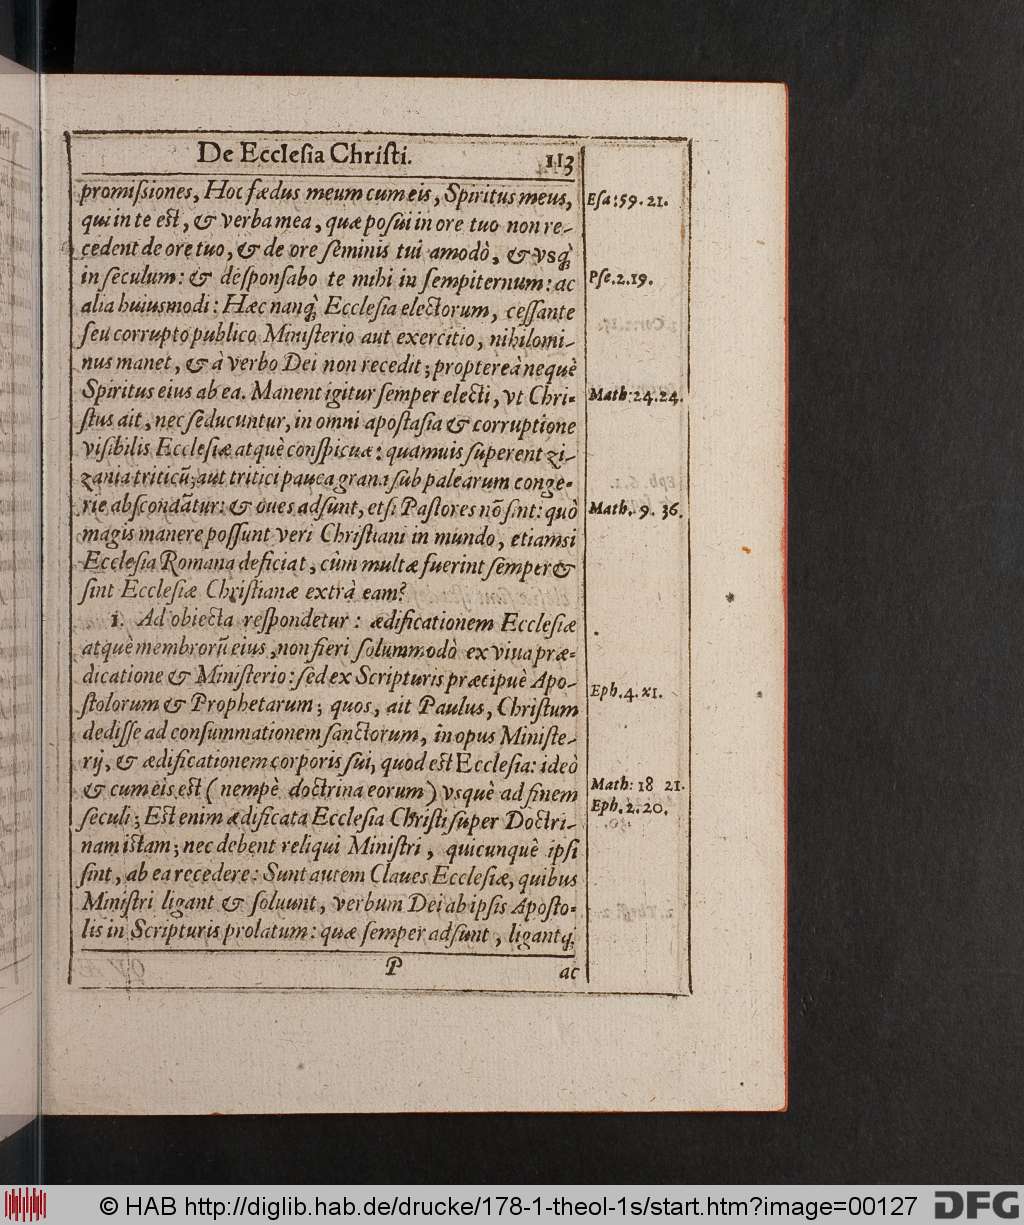 De Ecclesia Christi. 113
promiſsiones, Hoc fædus meum cum eis, Spiritus meus,
qui in te eſt, & verba mea, quæ poſui in ore tuo non re-
cedent de ore tuo, & de ore ſeminis tui amodò, & vsq;
in ſeculum: & deſponſabo te mihi in ſempiternum: ac
alia huiusmodi: Hæc nanq; Ecclesia electorum, ceſſante
ſeu corrupto publico Miniſterio aut exercitio, nihilomi-
nus manet, & à verbo Dei non recedit; proptereà nequè
Spiritus eius ab ea. Manent igitur ſemper electi, vt Chri-
ſtus ait, nec ſeducuntur, in omni apoſtaſia & corruptione
viſibilis Ecclesiæ atquè conſpicuæ: quamuis ſuperent zi-
zania triticũ; aut tritici pauca grana ſub palearum conge-
rie abſcondãtur: & oues adſunt, etſi Paſtores nõ ſint: quò
magis manere poſſunt veri Chriſtiani in mundo, etiamsi
Ecclesia Romana deficiat, cùm multæ fuerint ſemper &
ſint Ecclesiæ Chriſtianæ extrà eam?
1. Ad obiecta reſpondetur: ædificationem Ecclesiæ
atquè membrorũ eius, non fieri ſolummodò ex viua præ-
dicatione & Miniſterio: ſed ex Scripturis præcipuè Apo-
ſtolorum & Prophetarum; quos, ait Paulus, Chriſtum
dediſſe ad conſummationem ſanctorum, in opus Miniſte-
rij, & ædificationem corporis ſui, quod eſt Ecclesia: ideò
& cum eis eſt (nempè doctrina eorum) vsquè ad finem
ſeculi; Eſt enim ædificata Ecclesia Chriſti ſuper Doctri-
nam iſtam; nec debent reliqui Miniſtri, quicunquè ipſi
ſint, ab ea recedere: Sunt autem Claues Ecclesiæ, quibus
Miniſtri ligant & ſoluunt, verbum Dei ab ipſis Apoſto-
lis in Scripturis prolatum: quæ ſemper adſunt, ligantq;
P ac
Eſa: 59. 21.
Pſe. 2. 19.
Math: 24. 24.
Math. 9. 36.
Eph. 4. XI.
Math: 18 21.
Eph. 2. 20.
© HAB http://diglib.hab.de/drucke/178-1-theol-1s/start.htm?image=00127
DFG